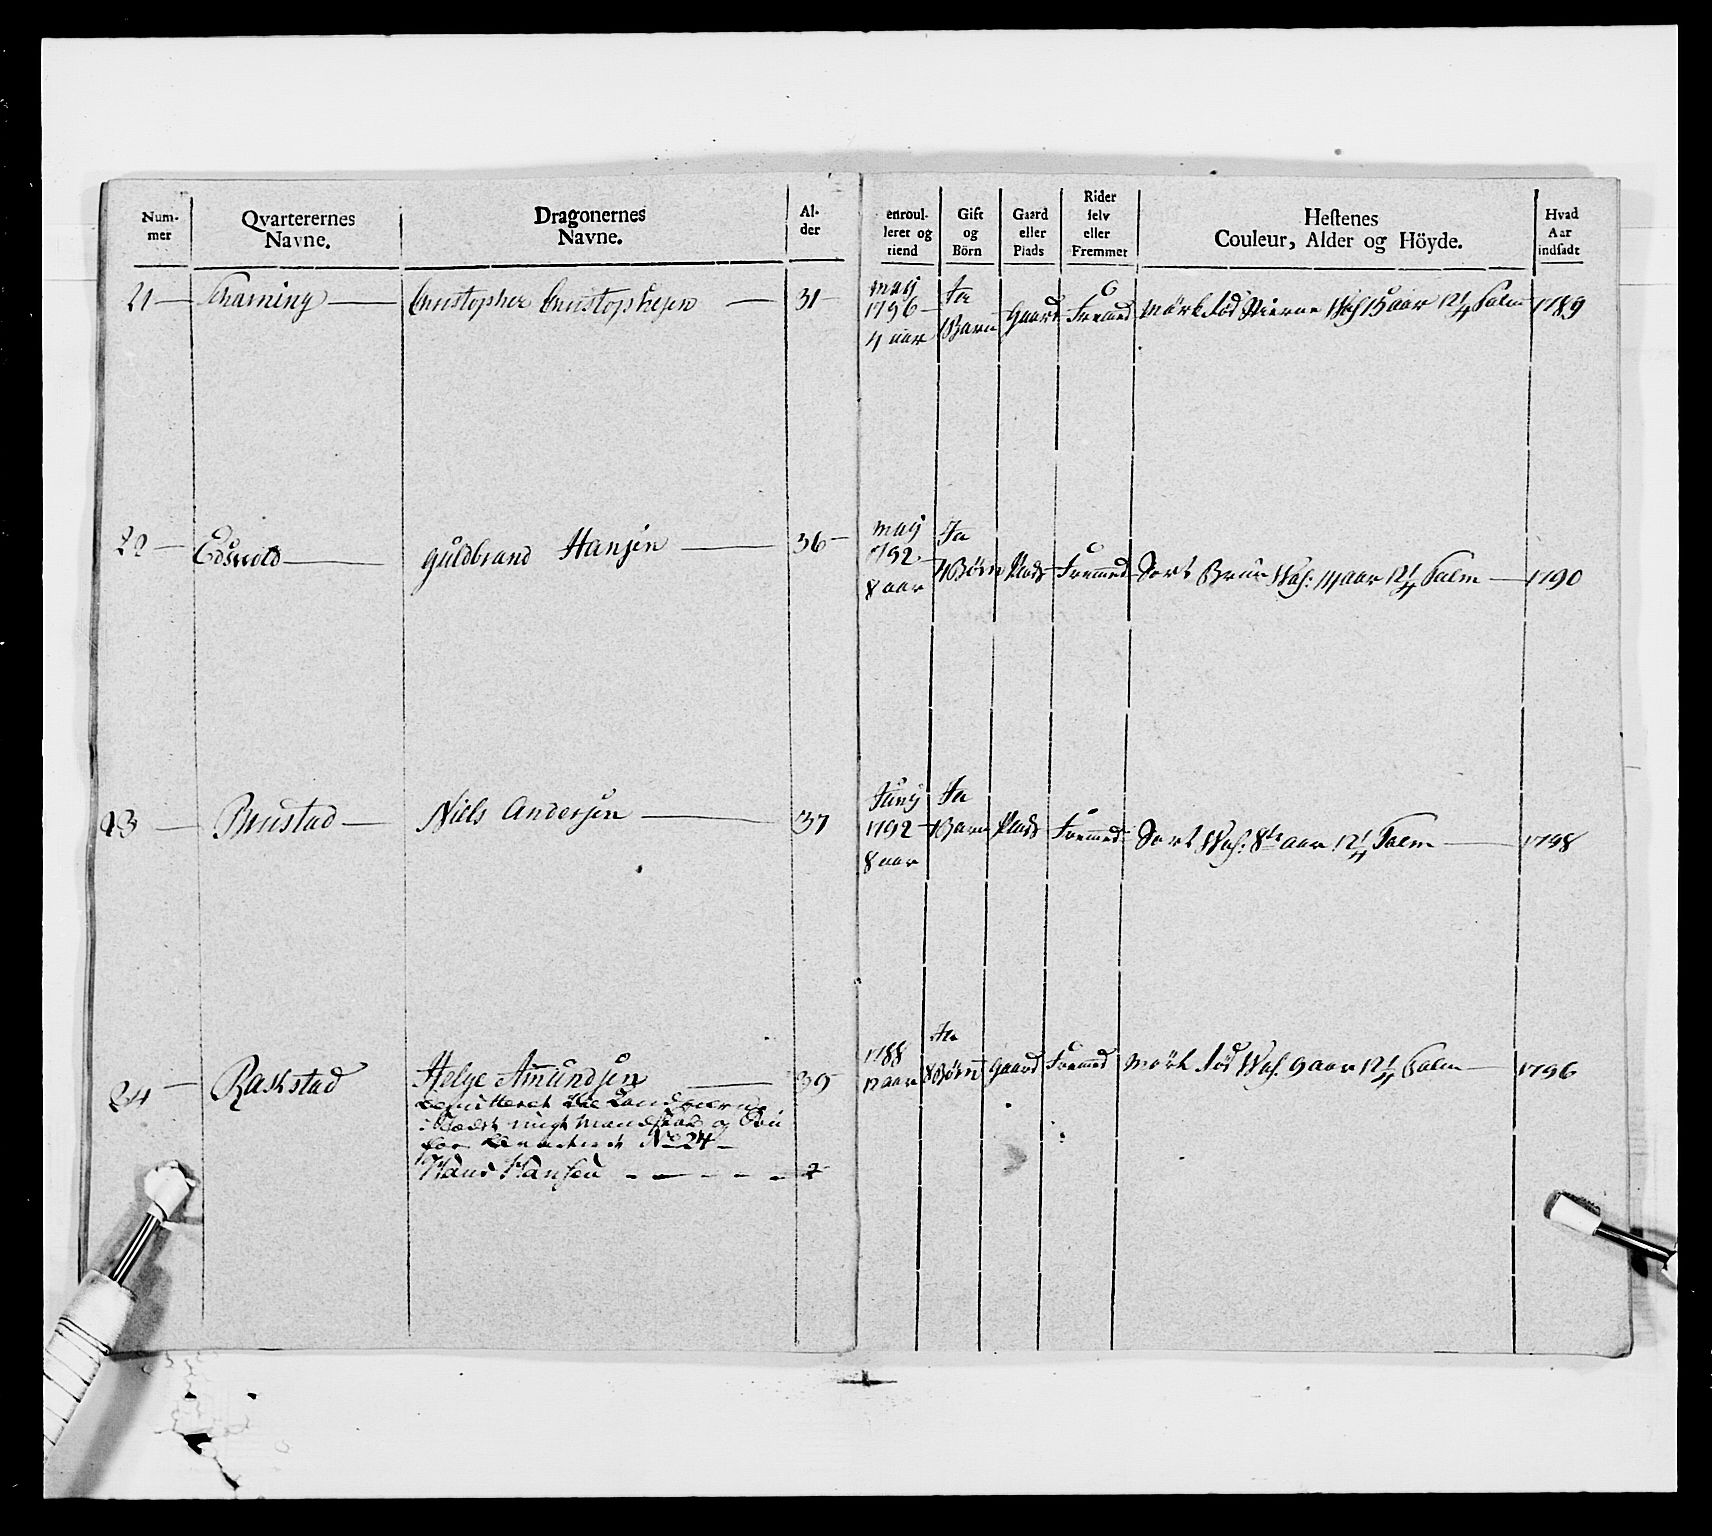 Num-
mer
Qvarterernes
Navne.
Dragonernes
Navne.
Al-
der
enroul-
leret og
tiend
Gift
og
Börn
Gaard
eller
Plads
Rider
selv
eller
Fremmet
Hestenes
Couleur, Alder og Höyde.
Hvad
Aar
indsadt
21 — — Christopher Christophersen — 31
maij
1796
4 aar
Ja
1 Barn
Gaard
Fremed
Mörk Röd Stierne Wal. 15 aar 12 1/4 Palm
1789
22 — Edsvold — Guldbrand Hansen — 36
maij
1792
8 aar
Ja
Börn
Plads
Fremed
Sort Brun Wal. 14 aar 12 1/4 Palm — 1790
23 — Brustad — Niels Andersen — 37
Junij
1792
8 aar
Ja
1 Barn
Plads
Fremed
Sort Wal. 8te aar 12 1/4 Palm — 1798
24 — Raskstad Helge Amundsen — 39
1788
12 aar
Ja
3 Börn
Gaard
Fremed
Mörk Röd Wal. 9 aar 12 1/4 Palm — 1796
No 24 —
Hans Hansen - - - - -